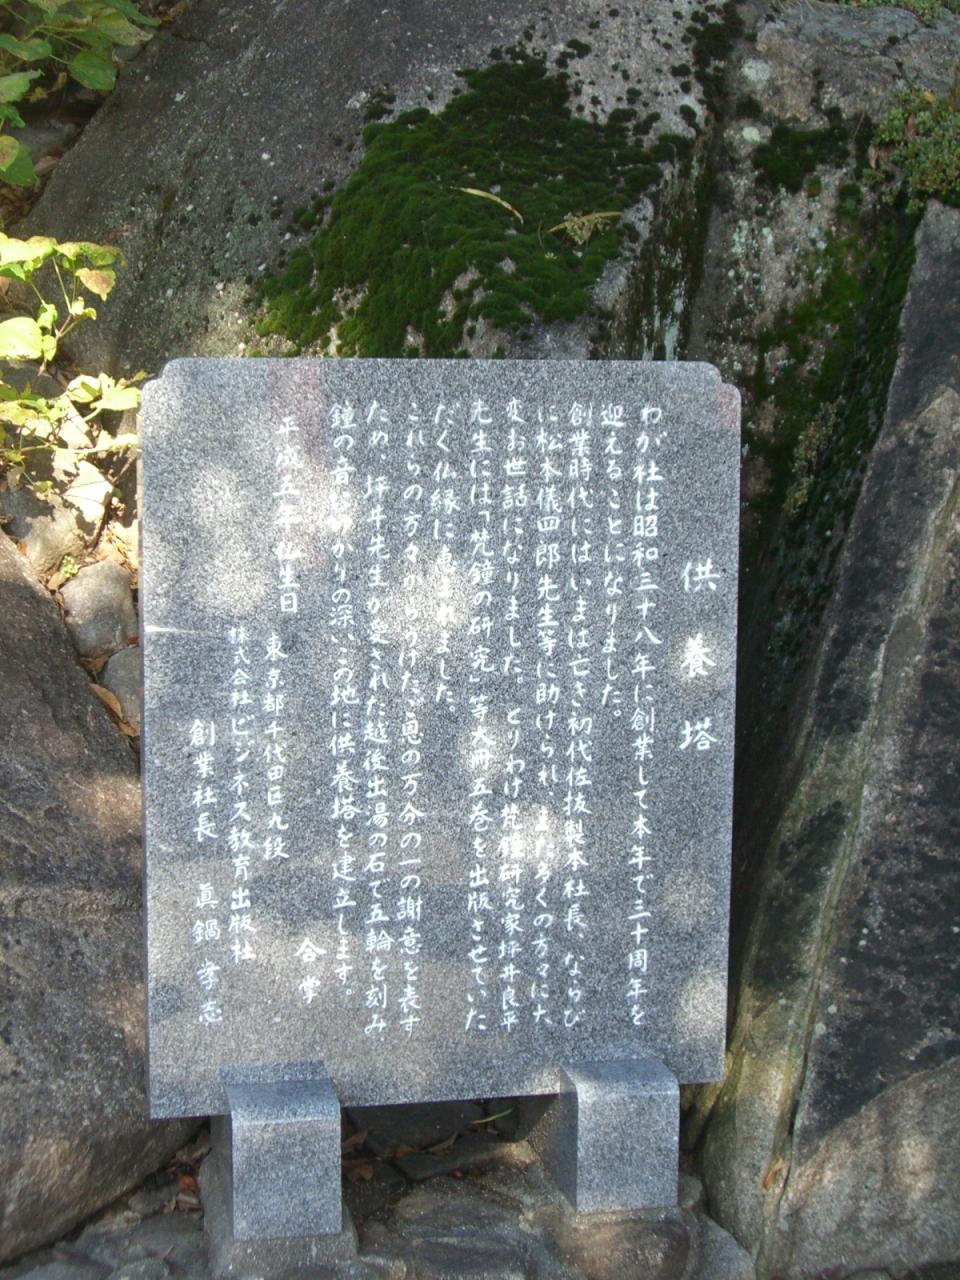 供養塔
わが社は昭和三十八年に創業して本年で三十周年を
迎えることになりました。
創業時代にはいまは亡き初代佐抜製本社長、ならび
に松本儀四郎先生等に助けられ、また多くの方々に大
変お世話になりました。とりわけ梵鐘研究家坪井良平
先生には「梵鐘の研究」等大冊五巻を出版させていた
だく仏縁に恵まれました。
これらの方々からうけたご恩の万分の一の謝意を表す
ため、坪井先生が愛された越後出湯の石で五輪を刻み
鐘の音ゆかりの深いこの地に供養塔を建立します。
合掌
平成五年仏生日
東京都千代田区九段
株式会社ビジネス教育出版社
創業社長 眞鍋孝志